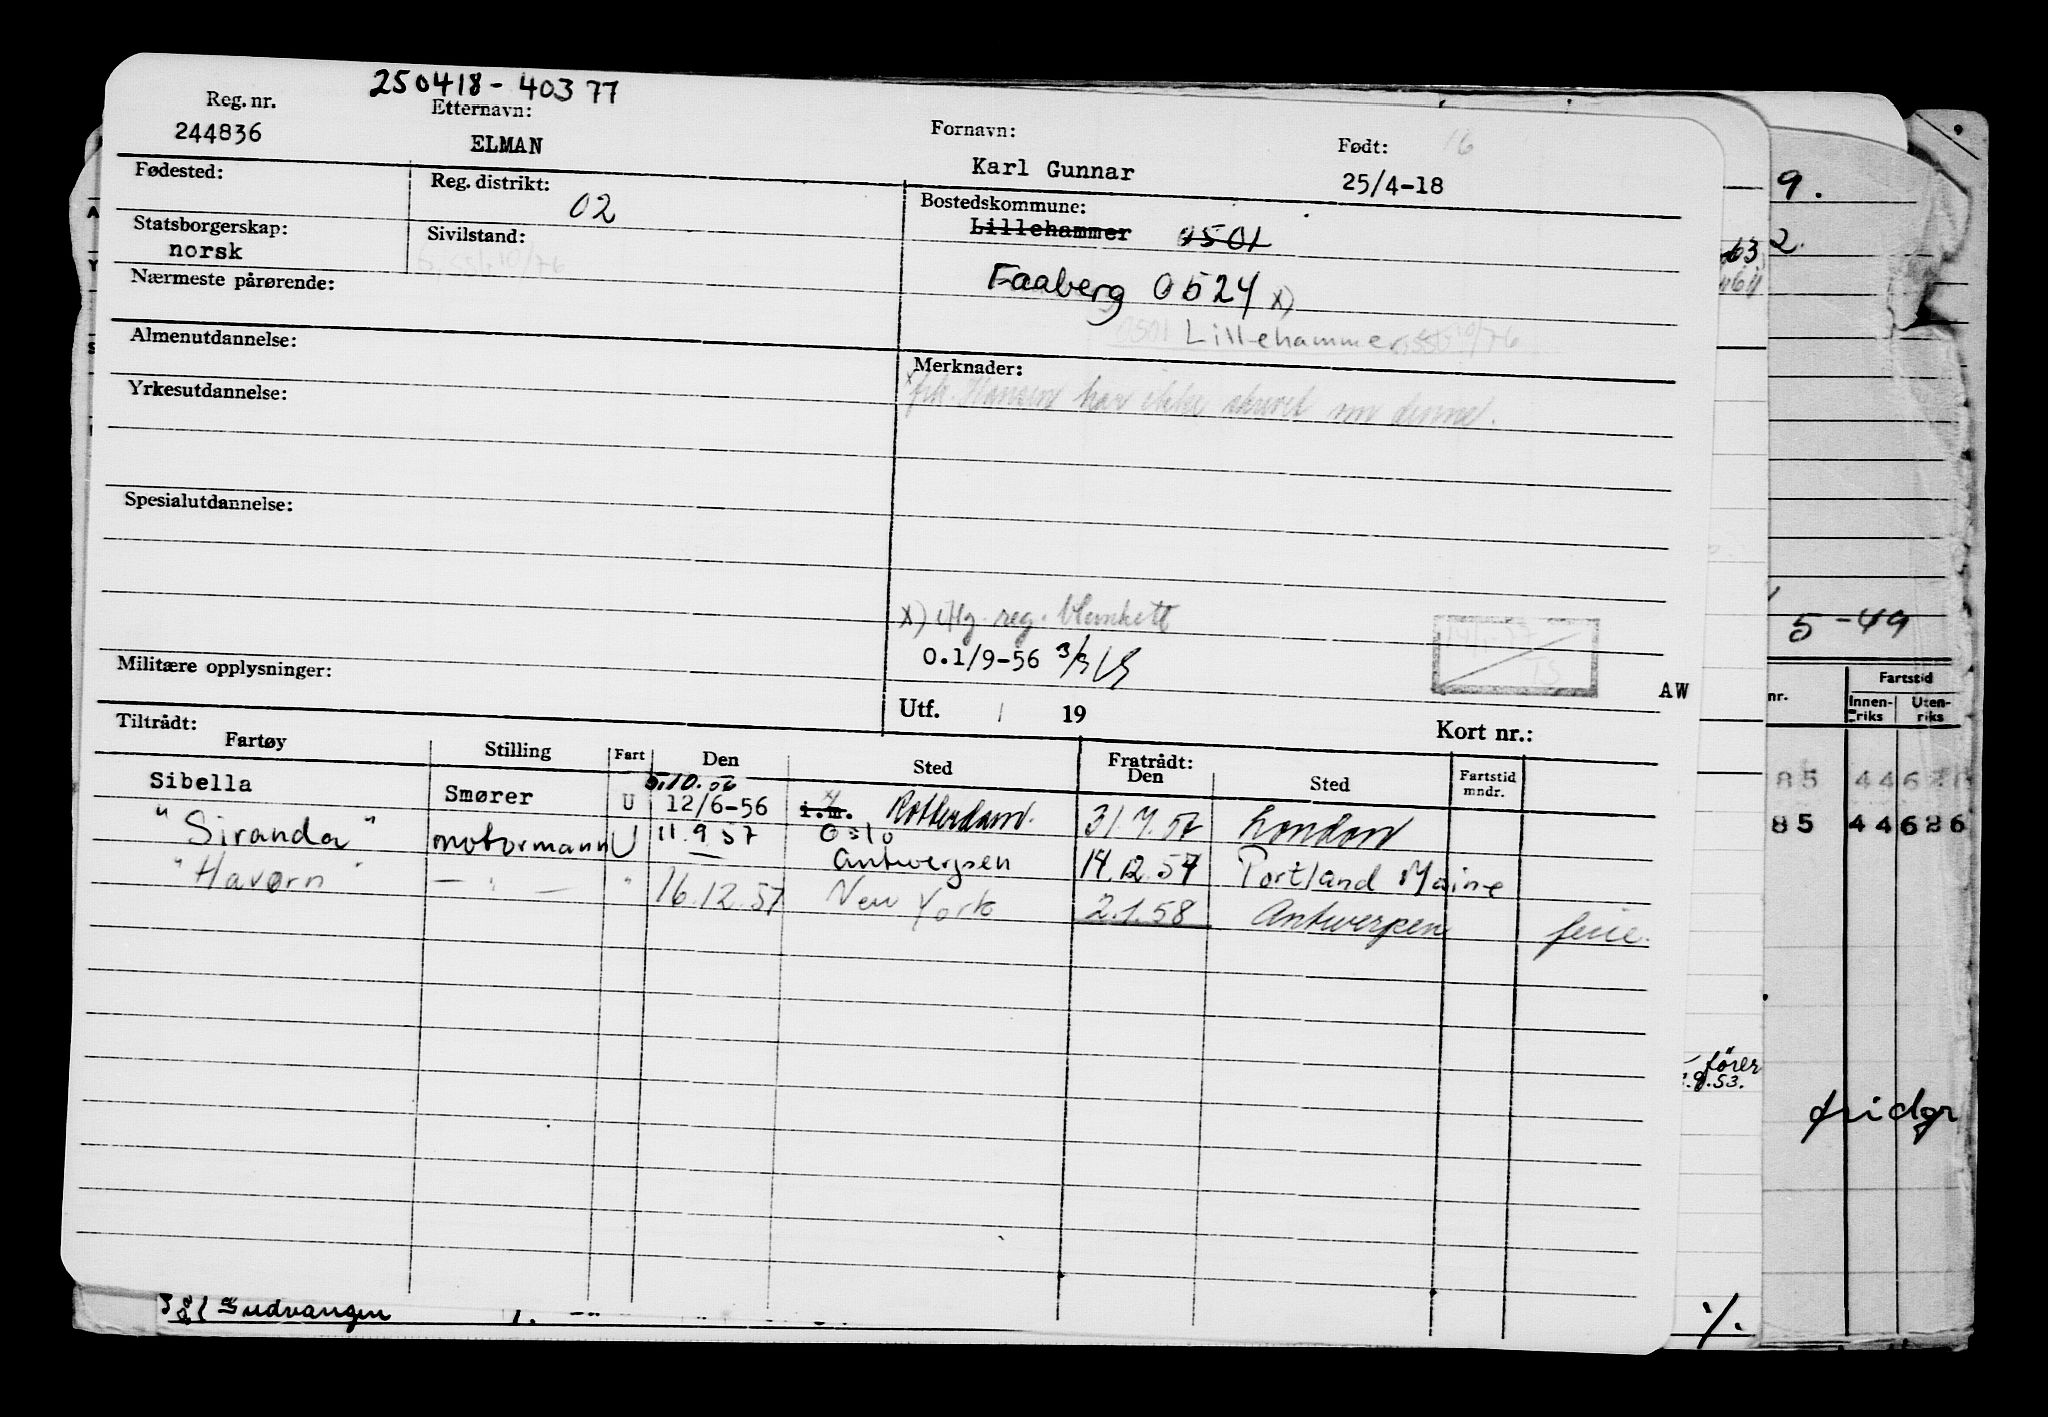 250418-40377
Reg. nr. Etternavn: Fornavn: Født: 16
244836 ELMAN Karl Gunnar 25/4-18
Fødested: Reg. distrikt: 02 Bostedskommune:
Lillehammer 0501
Statsborgerskap: Sivilstand:
norsk
Faaberg 0524 x)
Nærmeste pårørende:
0501 Lillehammer 10/76
Almenutdannelse: Merknader:
Hansen har ikke skrevet om denne.
Yrkesutdannelse:
Spesialutdannelse:
x) iflg. reg. blankett
0.1/9-56
Militære opplysninger: AW
Utf. / 19 Kort nr.:
Tiltrådt: Fratrådt:
Fartøy Stilling Fart Den Sted Den Sted Fartstid mndr.
5.10.56
Sibella Smører U 12/6-56 i.m. Rotterdam. 31.7.57 London
"Siranda" motormann U 11.9.57 Oslo
— Antwerpen 14.12.57 Portland Maine
"Havørn" — " — " 16.12.57 New York 2.1.58 Antwerpen ferie.
Gudvangen
9.
2.
63
5-49
nr. Fartstid
Innen-riks Uten-riks
85 44626
85 44626
fører
53.